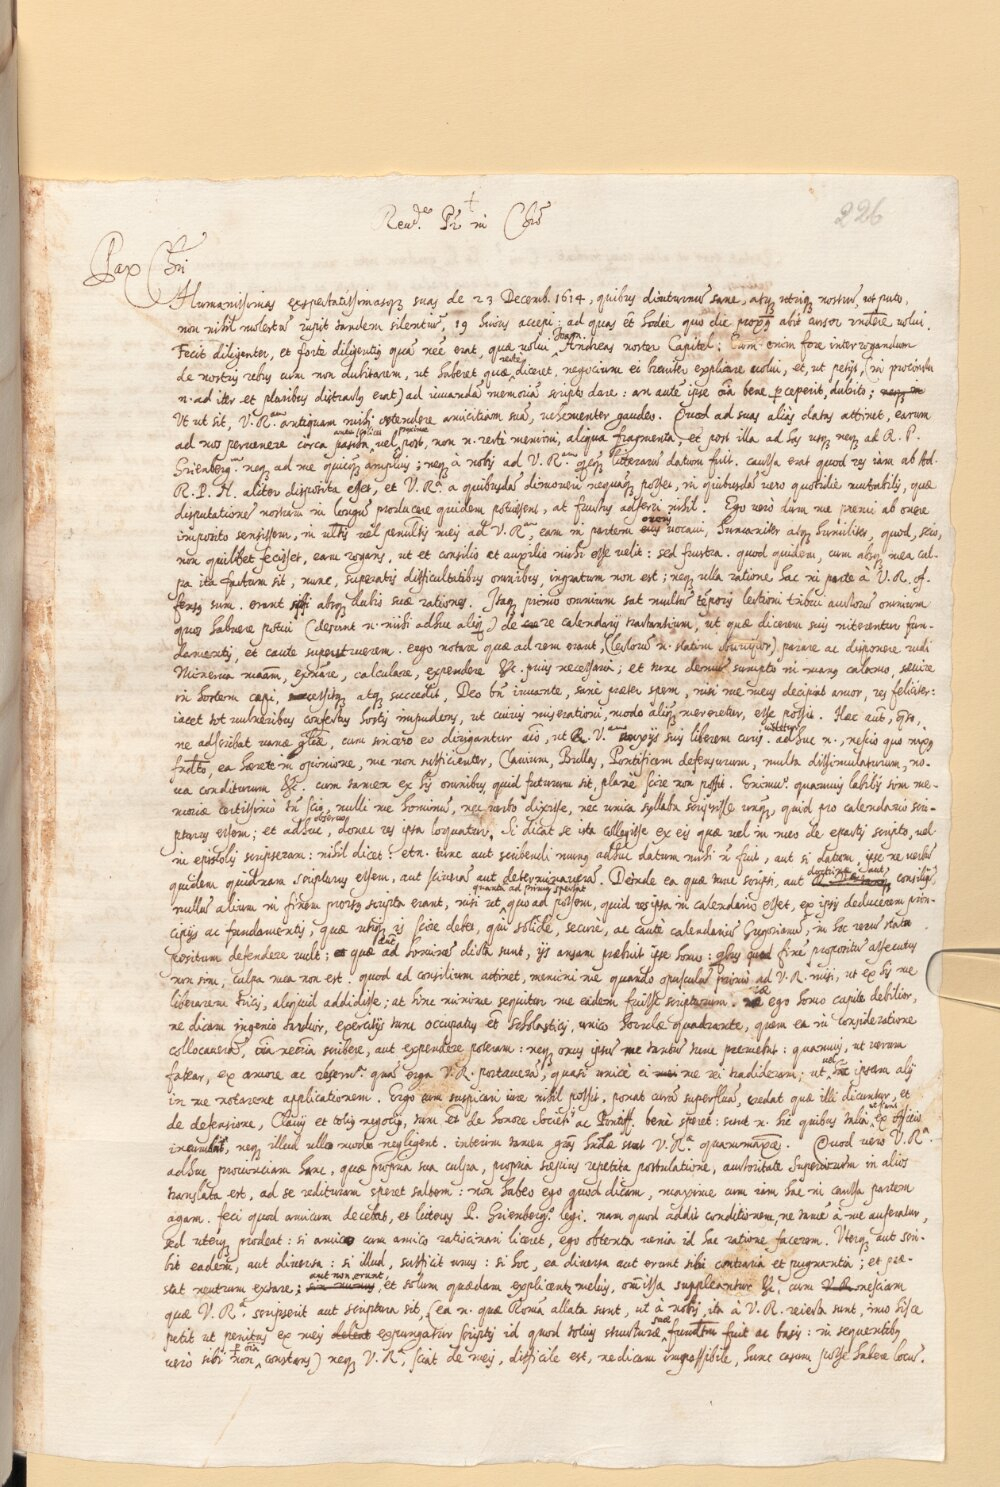 226
Reud.e Pr in Chro
Pax Chri
Humanissimas exspectatissimasq; suas de 23 Decemb. 1614, quibus diuturnus sane, atq; utriq; nostrum, ut puto,
non nihil molestus rupit tandem silentium, 19 huius accepi: ad quas et hodie, quo die abit cursor uolui.
Fecit diligenter, et forte diligentius quam erat, quae uolui Andreas noster Capitel; Cum enim fore interrogandum
de nostris rebus eum non dubitarem, ut haberet quae recte diceret, negocium ei breuiter explicare uolui, et, ut petijt, (in procinctu
n. ad iter et pluribus districtus erat) ad iuuanda memoria scripto dare: an autem ipse oia bene perceperit, dubito;
Ut ut sit, V. Ram antiquam mihi ostendere amicitiam sua, uehementer gaudeo. Quod ad suas alias datas attinet, earum
ad nos peruenere circa uel post, non n. recte memini, aliqua fragmenta, et post illa ad has usq; neq; ad R. P.
Grienberg. neq; ad me amplius; neq; à nobis ad V. Ram literarum datum fuit. caussa erat quod res iam ab Ad.
R. P. N. aliter disposita esset, et V. Ra à quibusdam dimoueri nequaq; posset, in quibusdam uero quotidie mutabilis, quae
disputationem nostram in longum producere quidem potuissent, at fructus adferri nihil. Ego uero dum me premi ab onere
imposito sensissem, in ultimis uel penultimis meis ad V. Ram, eam in partem oneris uocaui, humaniter atq; humiliter, quod, scio,
non quilibet fecisset, eam rogans, ut et consilio et auxilio mihi esse velit: sed frustra. quod quidem, cum absq; mea cul-
pa ita factum sit, nunc, superatis difficultatibus omnibus, ingratum non est; neq; ulla ratione hac in parte à V. R. of-
fensus sum. erant absq; dubio suae rationes. Itaq; primo omnium sat multum temporis lectioni tribui auctorum omnium
quos habere potui (desunt n. mihi adhuc aliq;) de re calendaris tractantium, ut quae dicerem suis niterentur fun-
damentis, et caute superstruerem. ergo notare quae ad rem erant, (lectorum n. statim ) parare ac disponere rudi
Minerua materiam, examinare, calculare, expendere &c. fuit necessarium; et tunc demum sumpto in manus calamo, saeuire
in hostem caepi, successitq; atq; succedit, Deo bene iuuante, sane praeter spem, nisi me meus decipiat amor, res feliciter:
iacet tot vulneribus confectus hostis impudens, ut cuius miserationi, modo aliq; mereretur, esse possit. Haec aut, queso,
ne adscribat uanae gloriae, cum sincero eo dirigantur animo, ut R. V.am suis liberem curis. adhuc n., nescio quo
fundamento, ea haeret in opinione, me non sufficienter, Clauium, Bullas, Pontificem defensurum, multa dissimulaturum, no-
ua conditurum &c. cum tamen ex his omnibus quid futurum sit, plane scire non possit. Enimuero quamuis labilis sim me-
moriae certissime tamen scio, nulli me hominum, nec verbo dixisse, nec unica syllaba scripsisse unq;, quid pro calendario scri-
pturus essem; et adhuc, donec res ipsa loquatur. Si dicat se ista collegisse ex eis quae uel in meo de epactis scripto, uel
in epistolis scripseram: nihil dicet: etn. tunc aut scribendi munus adhuc datum mihi non fuit, aut si datum, ipse ne uerbum
quidem quidnam scripturus essem, aut sciueram aut determinaueram. Deinde ea quae tunc scripsi, aut doctrinae aut consilij
nullum alium in finem prorsus scripta erant, nisi ut, quantum ad primum spectat, quo ad possem, quid res ipsa in calendario esset, ex ipsis deducerem prin-
cipijs ac fundamentis, quae utiq; is scire debet, qui solide, secure, ac caute calendarium Gregorianum, in hoc rerum statu
positum defendere vult: quae aut ad hominem dicta sunt, ijs ansam praebuit ipse homo: finem propositum assecutus
non sim, culpa mea non est. quod ad consilium attinet, memini me quando opusculum primo ad V. R. misi, ut ex his me
liberarem tricis, aliquid addidisse; at hinc minime sequitur me eadem fuisse scripturum. ego homo capite debilior,
ne dicam ingenio tardior, exercitijs tunc occupatus et scholasticis, unico horulae quadrante, quem ea in consideratione
collocaueram, oia necessaria scribere, aut expendere poteram: neq; onus ipsum tantum tunc premebat: quamuis, ut uerum
fatear, ex amore ac reueren. quam erga V. R. portaueram, quasi unice ei me rei tradideram; ut uel ipsam alij
in me notarent applicationem. Ergo cum suspicari iure nihil possit, ponat curam superfluam, credat quae illi dicuntur, et
de defensione, Clauij et totius negotij, tum et de honore Societis ac Pontiff. bene speret: sunt n. hic quibus talia, ut sunt, ex officio
incumbunt, neq; illud ullo modo negligent. interim tamen gras habeo V. Rae quammaxas. Quod uero V. Ra.
adhuc prouinciam hanc, quae propria sua culpa, propria saepius repetita postulatione, auctoritate Superiorum in alios
translata est, ad se redituram speret saltem: non habeo ego quod dicam, maxime cum iam hac in caussa partem
agam. feci quod amicum decebat, et literas P. Grienberg. legi. nam quod addit conditionem, ne tamen à me auferatur,
sed uterq; prodeat: si amico cum amico ratiocinari liceret, ego obtenta uenia id hac ratione facerem. Uterq; aut scri-
bit eadem, aut diuersa: si illud, sufficit unus: si hoc, ea diuersa aut erunt sibi contraria et pugnantia; et prae-
stat neutrum extare; aut non erunt, et solum quaedam explicentur melius, omissa suppleantur &c. cum nesciam
quae V. Ra. scripserit aut scriptura sit, (ea n. quae Roma allata sunt, ut à nobis, ita à V. R. reiecta sunt, imo
petit ut penitus ex meis expungatur scriptis id quod totius structurae suae fundtum fuit ac basis: in sequentibus
uero sibi non constans) neq; V. Ra. sciat de meis, difficile est, ne dicam impossibile, hunc casum posse habere locum.